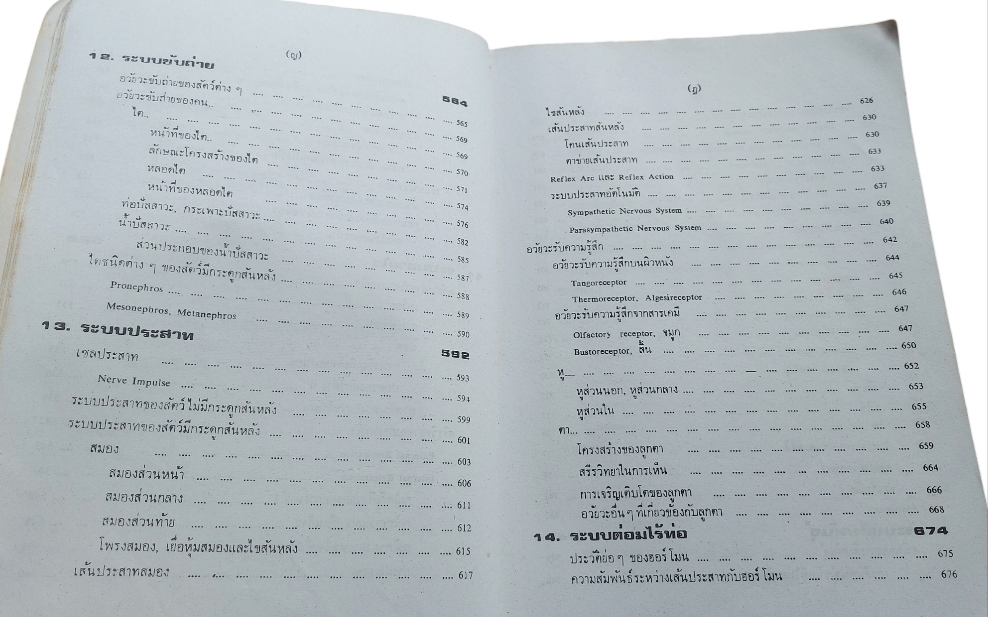 (ญ)
12. ระบบขับถ่าย 564
อวัยวะขับถ่ายของสัตว์ต่าง ๆ .... .... .... .... 565
อวัยวะขับถ่ายของคน.. .... .... .... .... 569
ไต.. .... .... .... .... 569
หน้าที่ของไต.. .... .... .... .... 570
ลักษณะโครงสร้างของไต .... .... .... .... 571
หลอดไต .... .... .... .... 574
หน้าที่ของหลอดไต .... .... .... .... 576
ท่อปัสสาวะ, กระเพาะปัสสาวะ .... .... .... .... 582
น้ำปัสสาวะ .... .... .... .... 585
ส่วนประกอบของน้ำปัสสาวะ .... .... .... .... 587
ไตชนิดต่าง ๆ ของสัตว์มีกระดูกสันหลัง .... .... .... .... 588
Pronephros .... .... .... .... 589
Mesonephros, Metanephros .... .... .... .... 590
13. ระบบประสาท 592
เซลประสาท .... .... .... .... 593
Nerve Impulse .... .... .... .... 594
ระบบประสาทของสัตว์ไม่มีกระดูกสันหลัง .... .... .... .... 599
ระบบประสาทของสัตว์มีกระดูกสันหลัง .... .... .... .... 601
สมอง .... .... .... .... 603
สมองส่วนหน้า .... .... .... .... 606
สมองส่วนกลาง .... .... .... .... 611
สมองส่วนท้าย .... .... .... .... 612
โพรงสมอง, เยื่อหุ้มสมองและไขสันหลัง .... .... .... .... 615
เส้นประสาทสมอง .... .... .... .... 617
(ฎ)
ไขสันหลัง .... .... .... .... 626
เส้นประสาทสันหลัง .... .... .... .... 630
โคนเส้นประสาท .... .... .... .... 630
ตาข่ายเส้นประสาท .... .... .... .... 633
Reflex Arc และ Reflex Action .... .... .... .... 633
ระบบประสาทอัตโนมัติ .... .... .... .... 637
Sympathetic Nervous System .... .... .... .... 639
Parasympathetic Nervous System .... .... .... .... 640
อวัยวะรับความรู้สึก .... .... .... .... 642
อวัยวะรับความรู้สึกบนผิวหนัง .... .... .... .... 644
Tangoreceptor .... .... .... .... 645
Thermoreceptor, Algesireceptor .... .... .... .... 646
อวัยวะรับความรู้สึกจากสารเคมี .... .... .... .... 647
Olfactory receptor, จมูก .... .... .... .... 647
Bustoreceptor, ลิ้น .... .... .... .... 650
หู .... .... .... .... 652
หูส่วนนอก, หูส่วนกลาง .... .... .... .... 653
หูส่วนใน .... .... .... .... 655
ตา... .... .... .... .... 658
โครงสร้างของลูกตา .... .... .... .... 659
สรีรวิทยาในการเห็น .... .... .... .... 664
การเจริญเติบโตของลูกตา .... .... .... .... 666
อวัยวะอื่นๆ ที่เกี่ยวข้องกับลูกตา .... .... .... .... 668
14. ระบบต่อมไร้ท่อ 674
ประวัติย่อ ๆ ของฮอร์โมน .... .... .... .... 675
ความสัมพันธ์ระหว่างเส้นประสาทกับฮอร์โมน .... .... .... .... 676